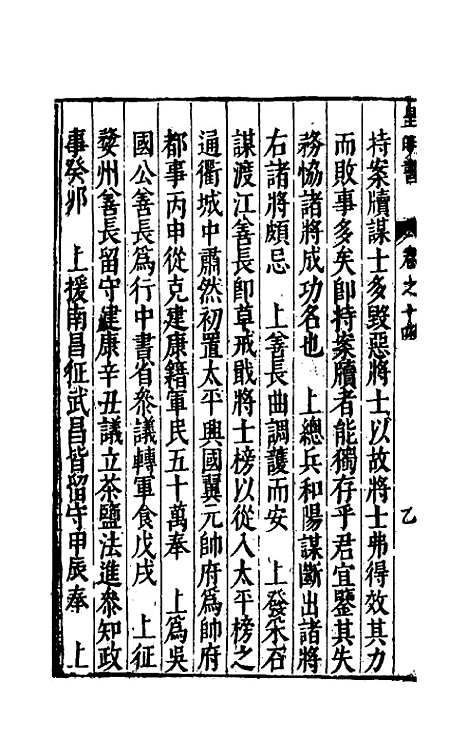 皇明書　卷之十四　乙
持案牘謀士多毀惡將士以故將士弗得效其力
而敗事多矣即持案牘者能獨存乎君宜鑒其失
務恊諸將成功名也　上總兵和陽謀斷出諸將
右諸將頗忌　上善長曲調護而安　上發采石
謀渡江善長即草戒戢將士榜以從入太平榜之
通衢城中肅然初置太平興國翼元帥府爲帥府
都事丙申從克建康籍軍民五十萬奉　上爲吳
國公善長爲行中書省參議轉軍食戊戌　上征
婺州善長留守建康辛丑議立茶鹽法進參知政
事癸卯　上援南昌征武昌皆留守甲辰奉　上